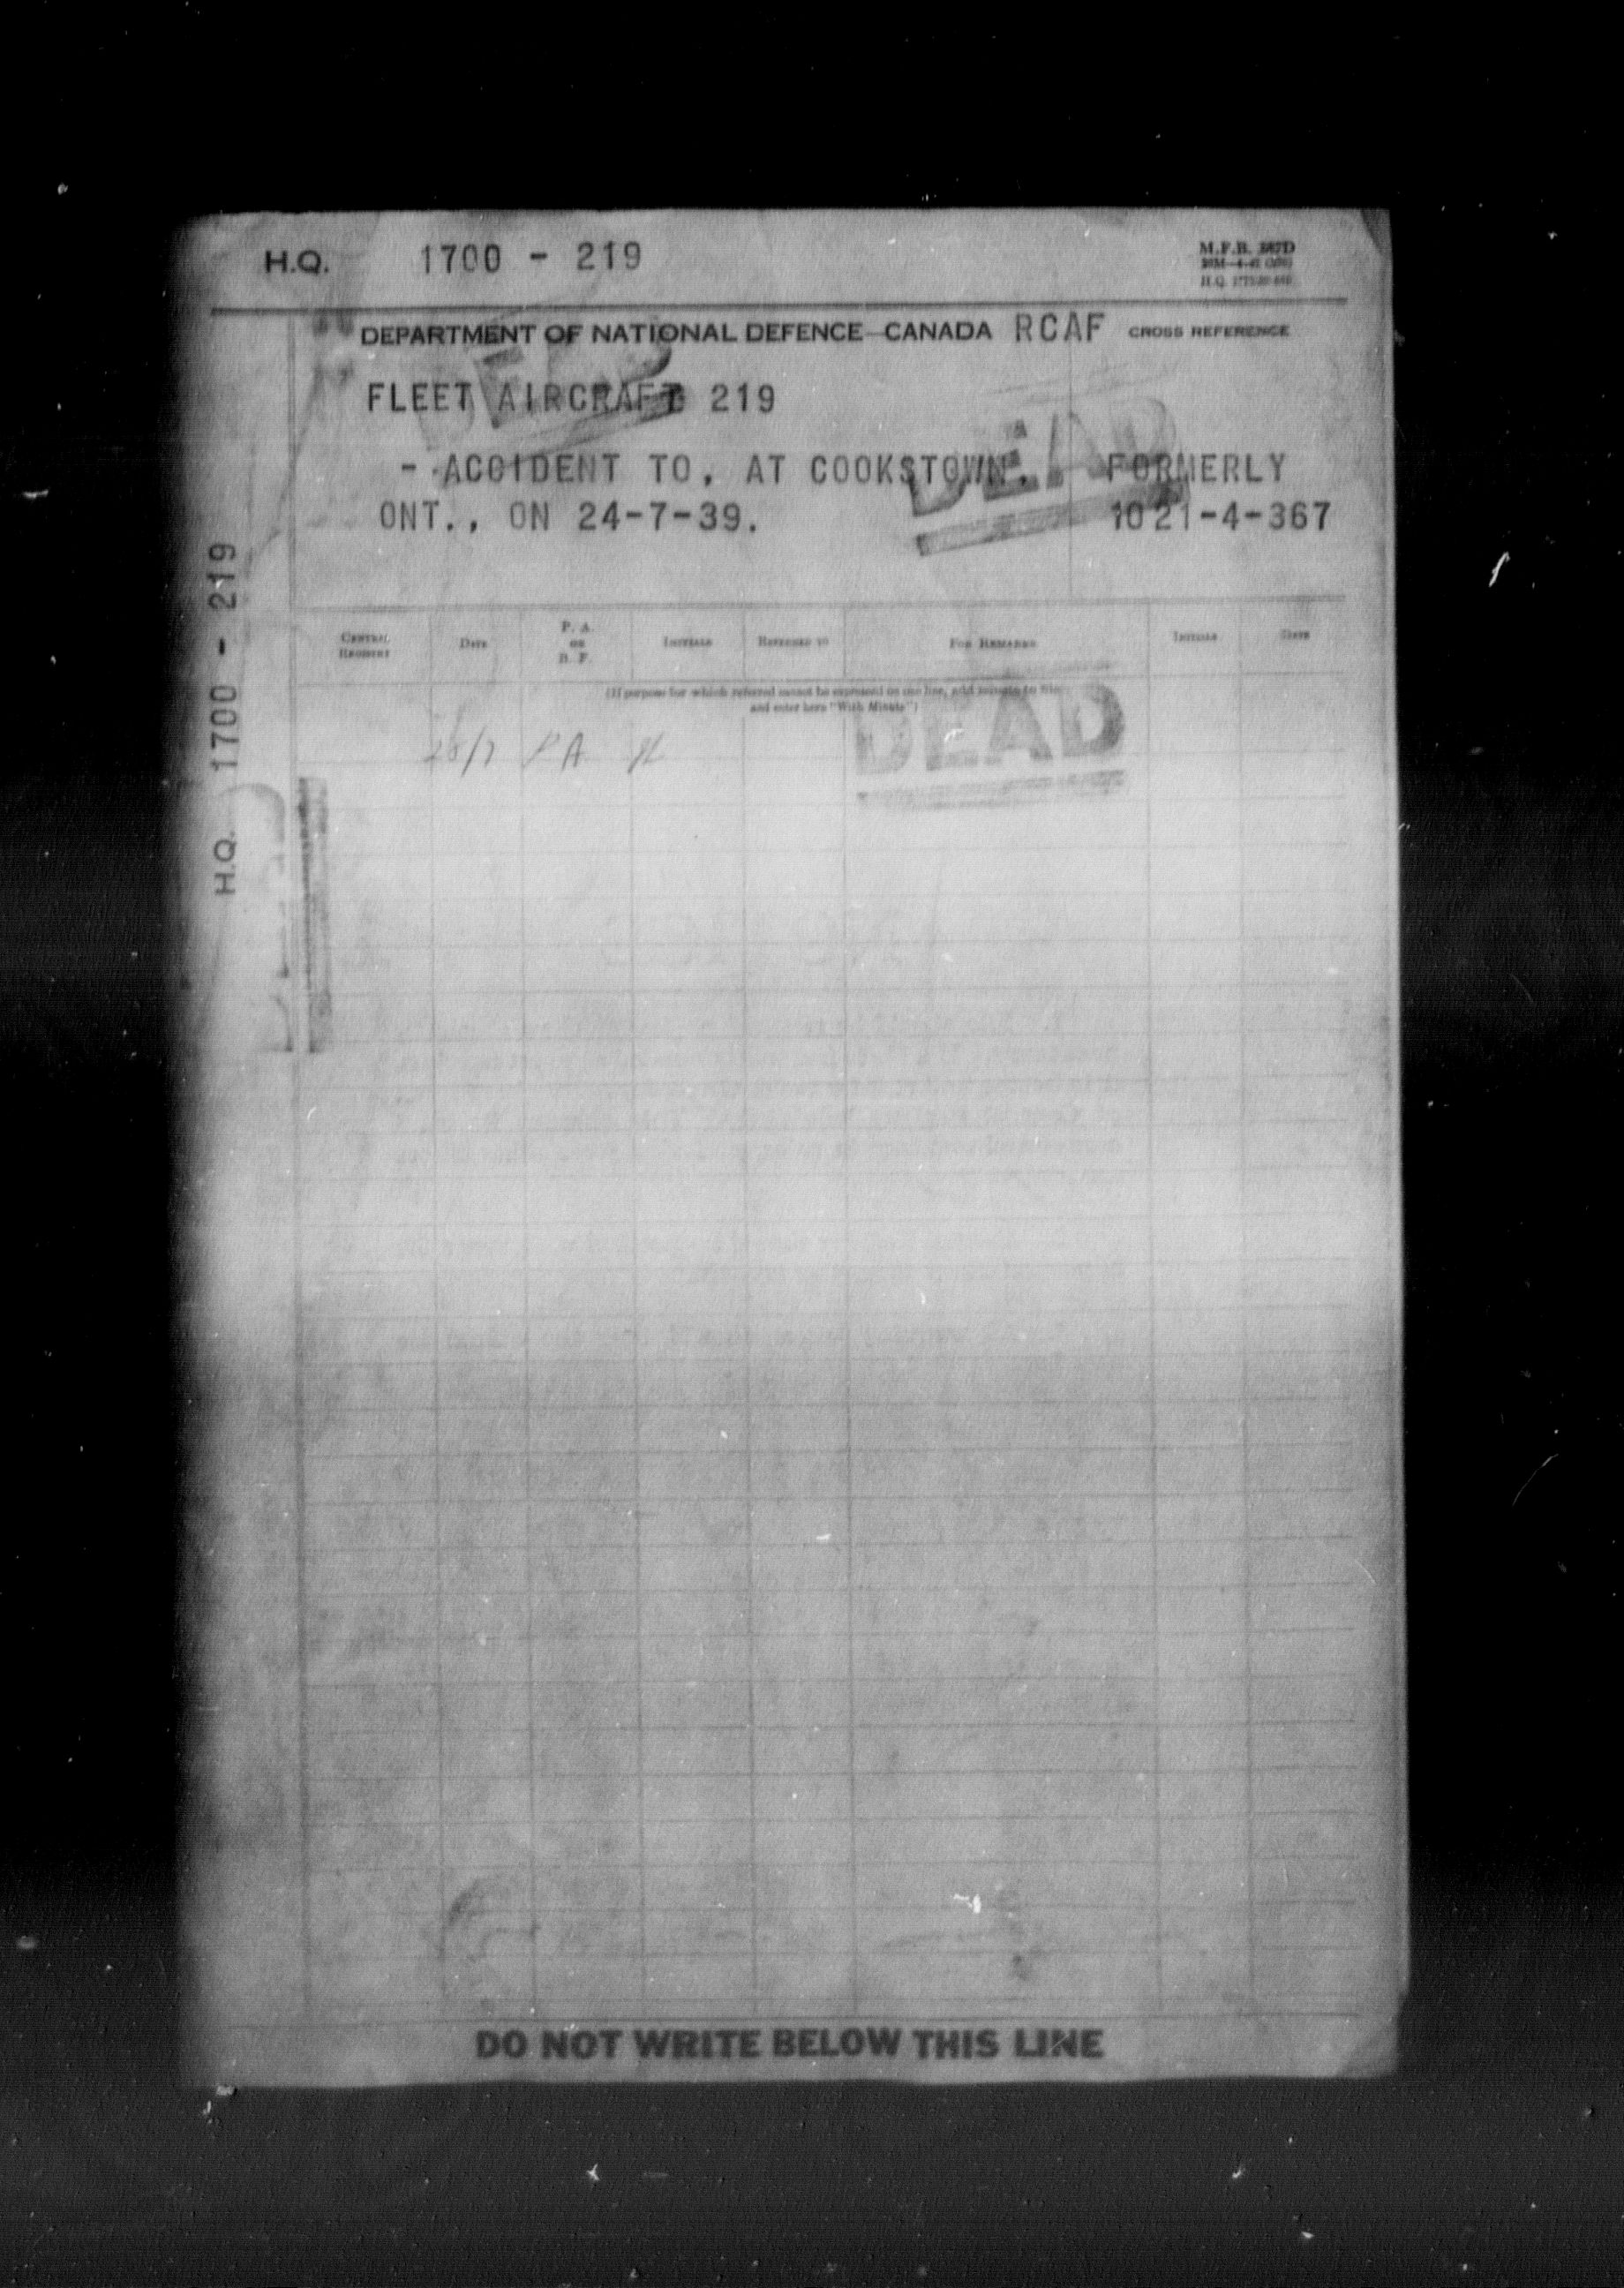 H.Q. 1700 - 219
M.F.B.
H.Q.
DEPARTMENT OF NATIONAL DEFENCE—CANADA RCAF CROSS REFERENCE
FLEET AIRCRAFT 219
- ACCIDENT TO, AT COOKSTOWN, FORMERLY
ONT., ON 24-7-39. 1021-4-367
DEAD
H.Q. 1700 - 219
CENTRAL REGISTRY DATE P. A. OR B. F. INITIALS REFERRED TO FOR REMARKS INITIALS DATE
(If purpose for which referred cannot be expressed on one line, add minute to file
and enter here "With Minute")
P A
DEAD
DO NOT WRITE BELOW THIS LINE